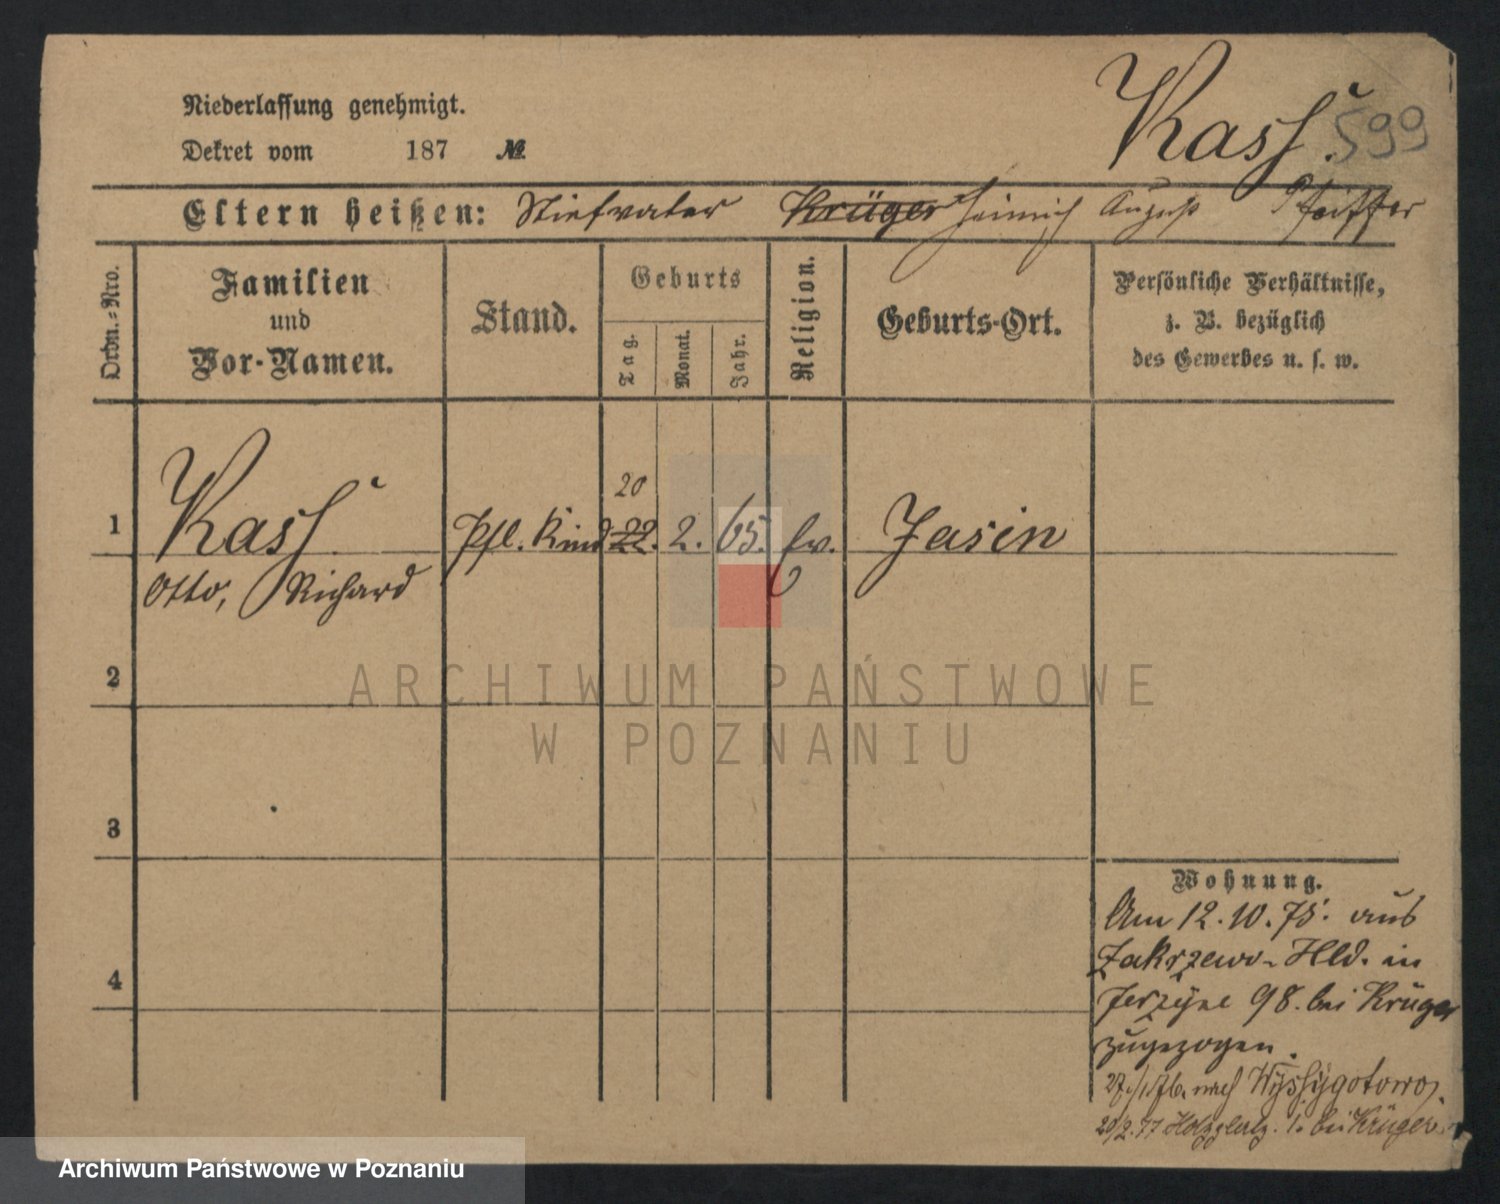 Kass. 599
Niederlassung genehmigt.
Dekret vom 187 №
Eltern heißen: Stiefvater Krüger Heinrich August Pfeiffer
Ordn.-Nro.
Familien
und
Vor-Namen.
Stand.
Geburts
Tag.
Monat.
Jahr.
Religion.
Geburts-Ort.
Persönliche Verhältnisse,
z. B. bezüglich
des Gewerbes u. s. w.
20
1 Kass Pfl. Kind 22. 2. 65. Ev. Jasin
Otto, Richard
2
ARCHIWUM PAŃSTWOWE
W POZNANIU
3
4
Wohnung.
Am 12.10.75. aus
Zakrzewo-Hld. in
Jerzyce 98. bei Krüger
zugezogen.
27./1.76. nach Wyssygotowo.
20/2.77 bei Krüger
Archiwum Państwowe w Poznaniu